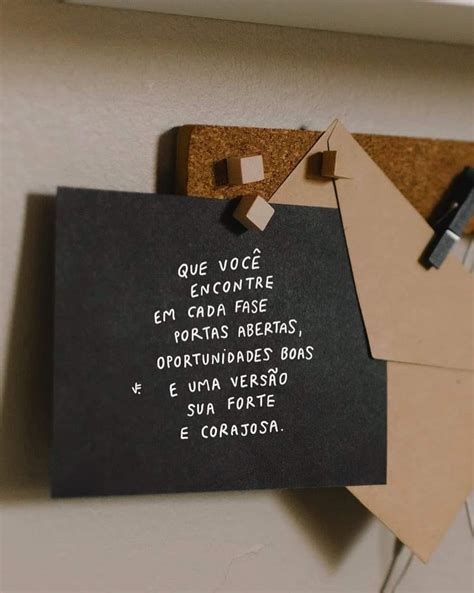 QUE VOCÊ
ENCONTRE
EM CADA FASE
PORTAS ABERTAS,
OPORTUNIDADES BOAS
E UMA VERSÃO
SUA FORTE
E CORAJOSA.